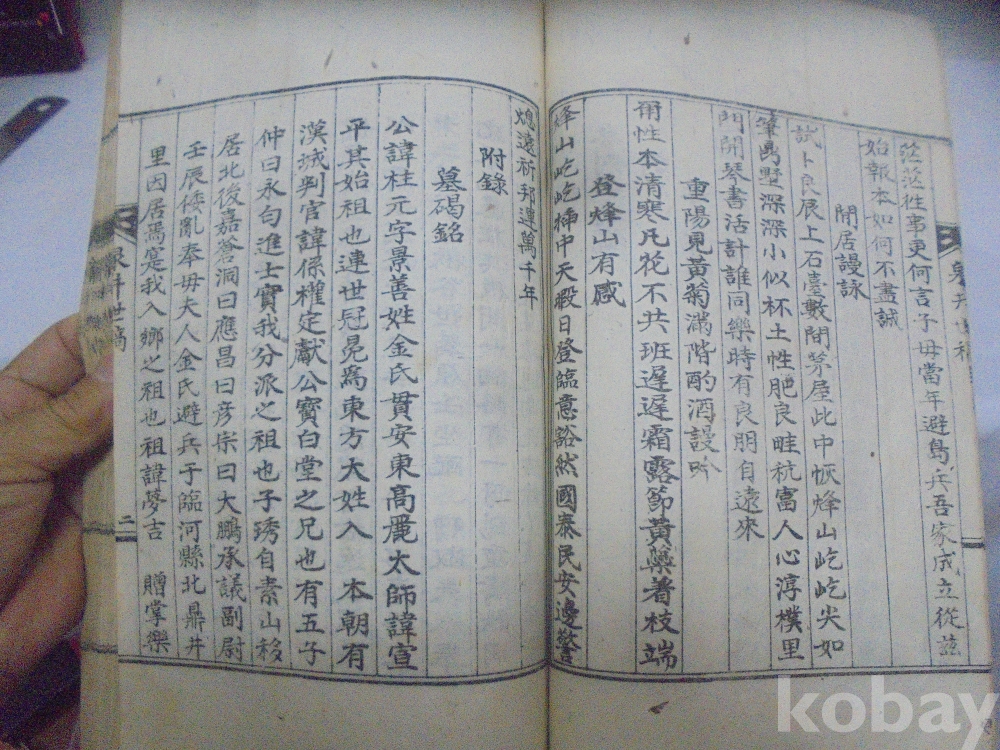 茫茫往事更何言子母當年避島兵吾家成立從茲
始報本如何不盡誠
閒居謾詠
試卜良辰上石臺數間茅屋此中恢烽山屹屹尖如
筆鳧墅深深小似杯土性肥良畦秔富人心淳樸里
門開琴書活計誰同樂時有良朋自遠來
重陽見黃菊滿階酌酒謾吟
爾性本清寒凡花不共班遲遲霜露節黃蘂着枝端
登烽山有感
烽山屹屹揷中天暇日登臨意豁然國泰民安邊警
熄遠祈邦運萬千年
附錄
墓碣銘
公諱柱元字景善姓金氏貫安東高麗太師諱宣
平其始祖也連世冠冕爲東方大姓入 本朝有
漢城判官諱係權定獻公寶白堂之兄也有五子
仲曰永勻進士寔我分派之祖也子琇自素山移
居北後嘉荅洞曰應昌曰彦宗曰大鵬承議副尉
壬辰倭亂奉母夫人金氏避兵于臨河縣北鼎井
里因居焉寔我入鄕之祖也祖諱夢吉 贈掌樂
世稿
二
kobay